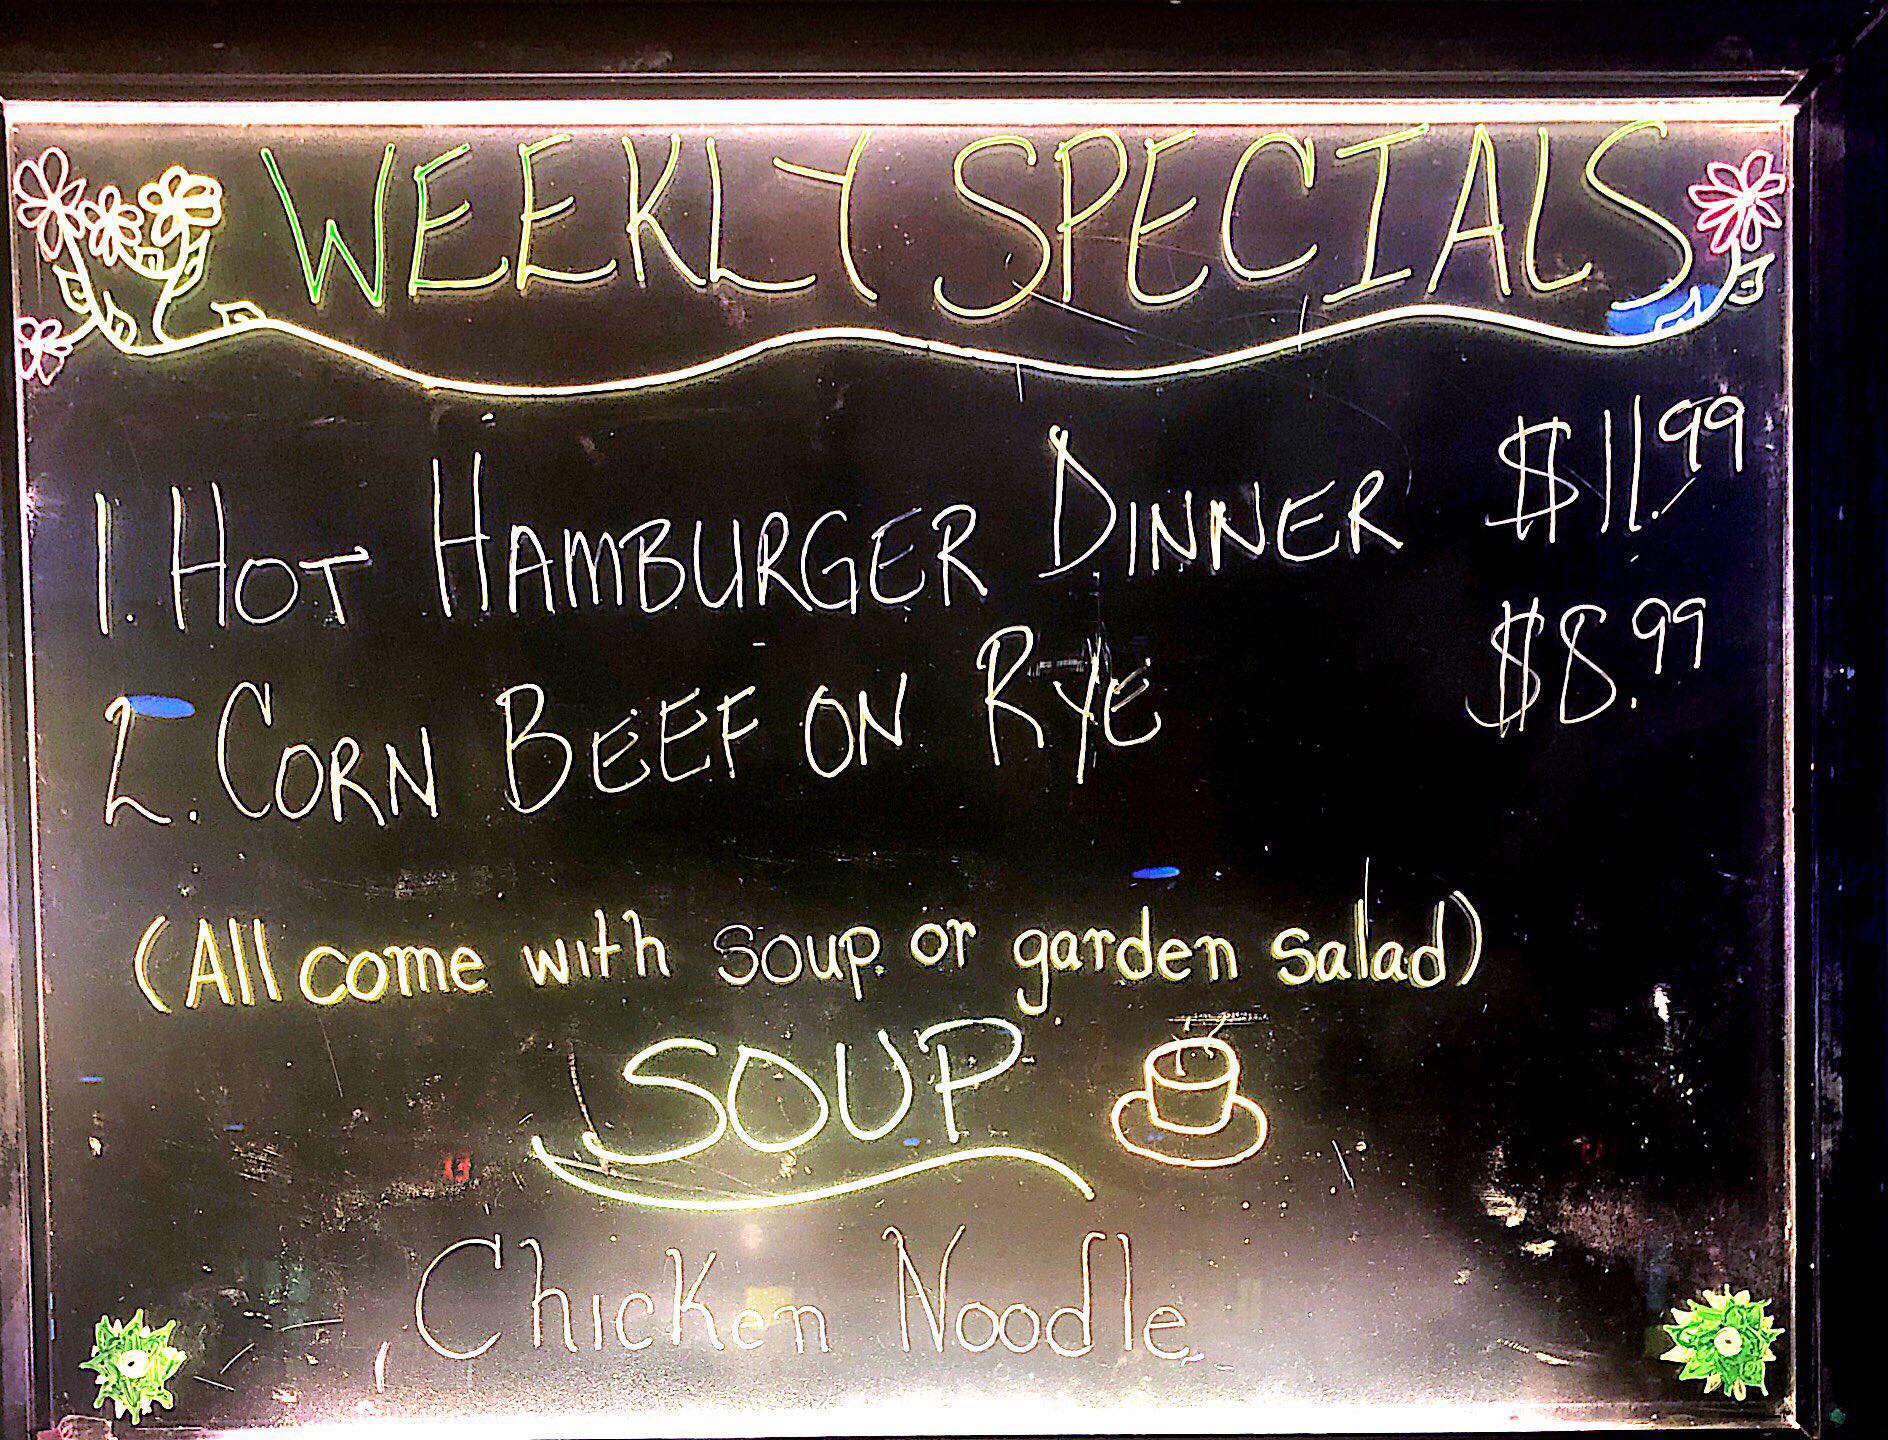 WEEKLY SPECIALS
1. HOT HAMBURGER DINNER $11.99
2. CORN BEEF ON RYE $8.99
(All come with soup or garden salad)
SOUP
Chicken Noodle